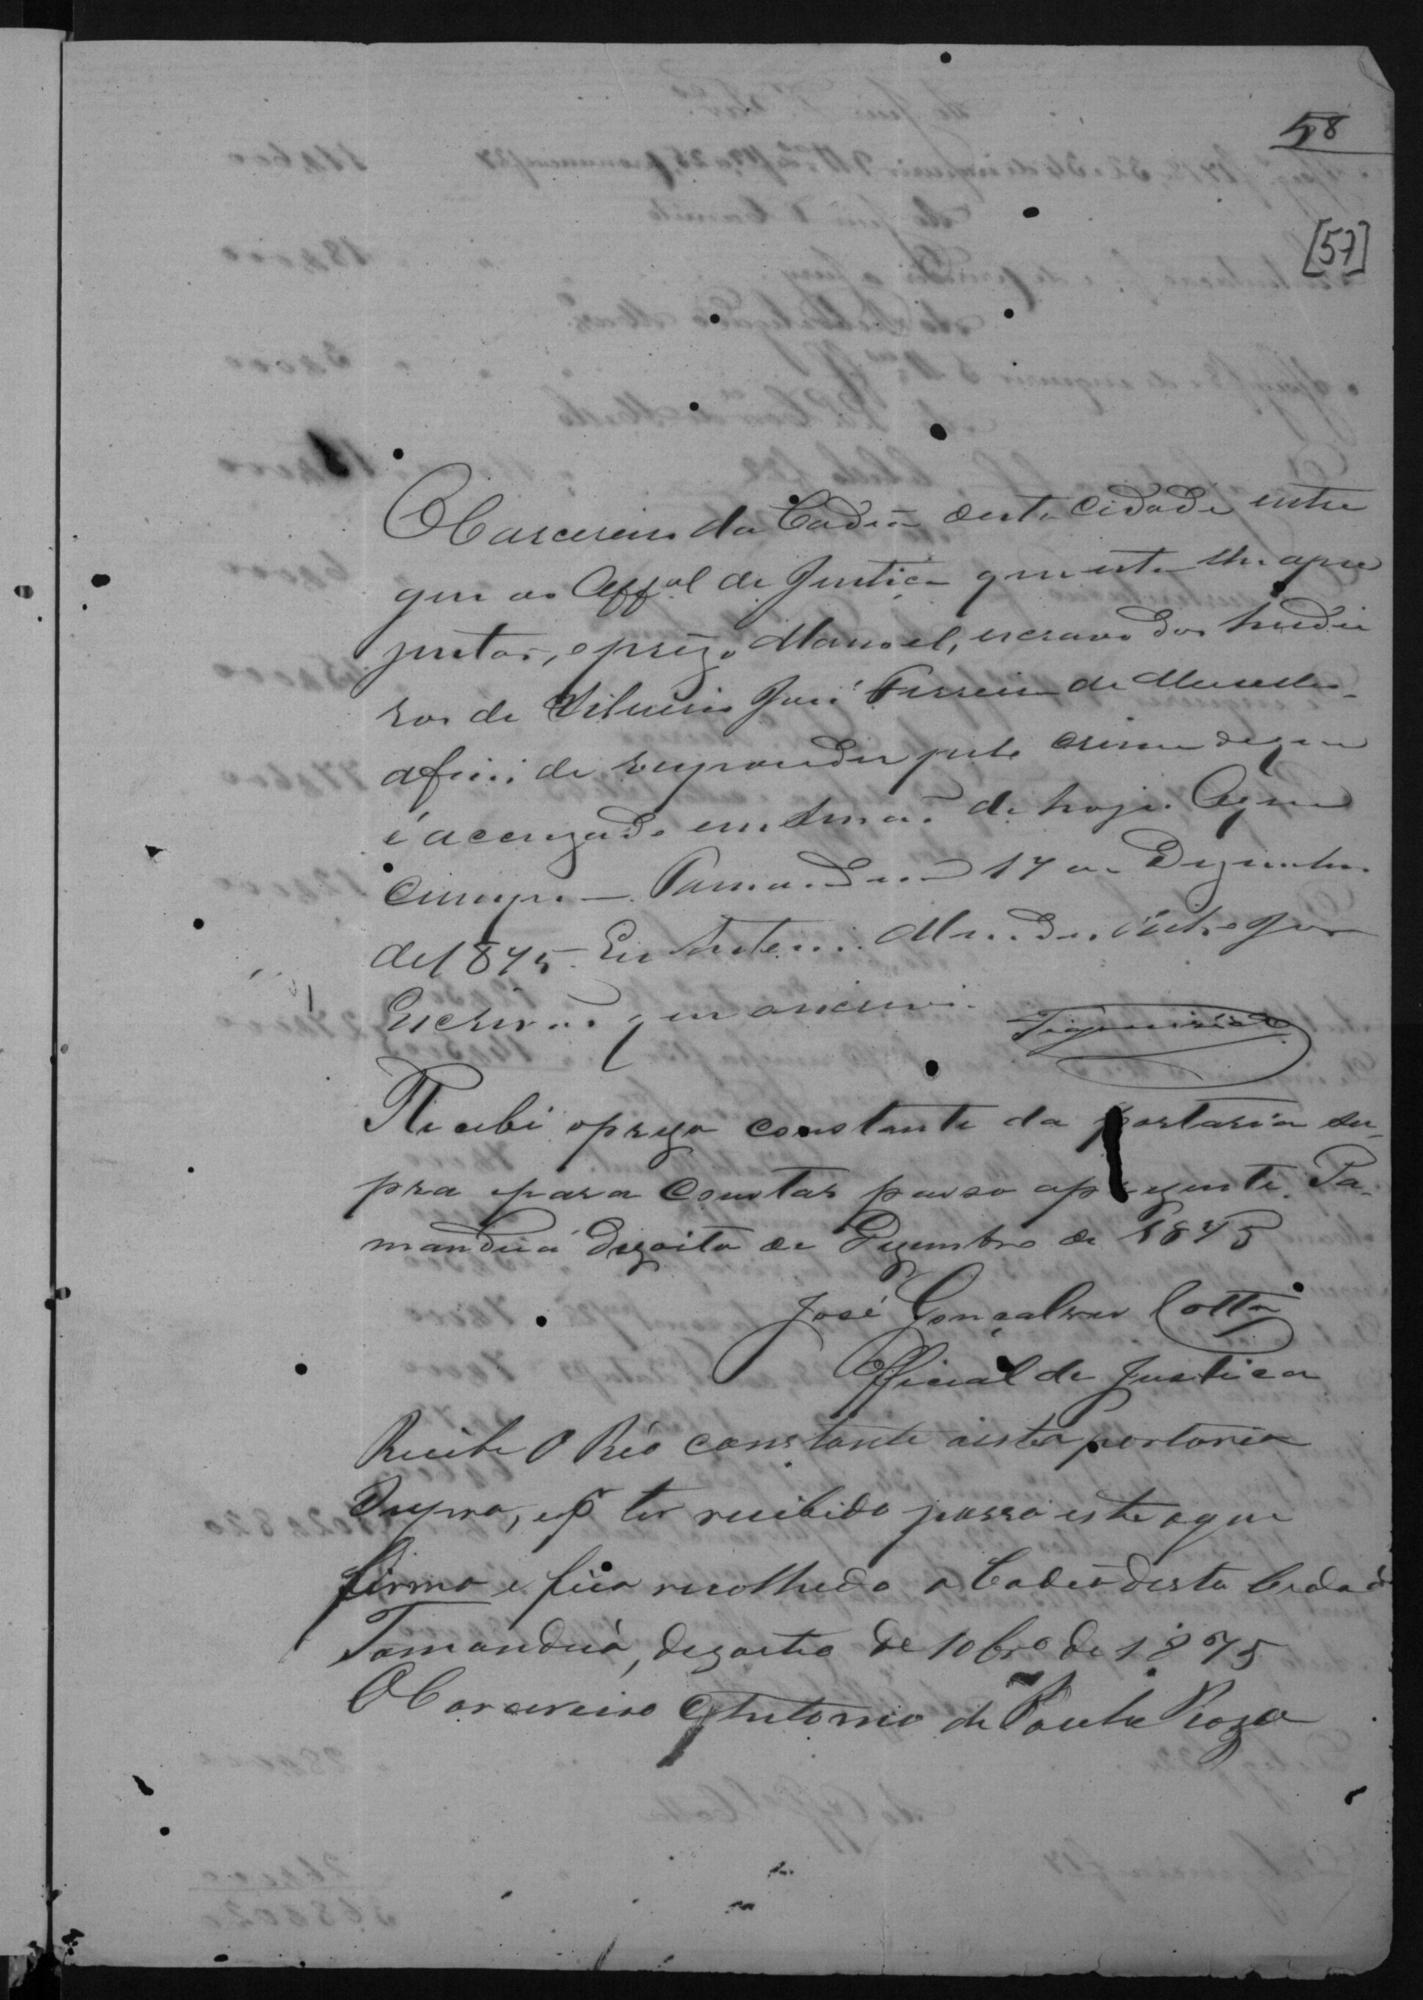 58
[57]
O Carcereiro da Cadêa desta Cidade entre
gue ao Offal de Justiça que esta lhe apre
zentar, o prezo Manoel, escravo dos herdei
ros de Silverio José Ferreira de
afim de responder pelo crime de que
é accuzado em de hoje. O que
cumpra. Tamanduá 17 de Dezembro
de 1875. Eu
Escrivão que o escrevi.
Recebi o prezo constante da portaria su-
pra e para constar passo o prezente. Ta-
manduá dezoito de Dezembro de 1875
José Gonçalves Cotta
Official de Justica
Recibi O Réo constante desta portaria
Supra, e pr ter recibido passo este o que
firmo e fica recolhedo a Cadeo desta Cidade
Tamanduá, dezoito de 10bro de 1875
O Carcereiro Antonio de Paula Roza